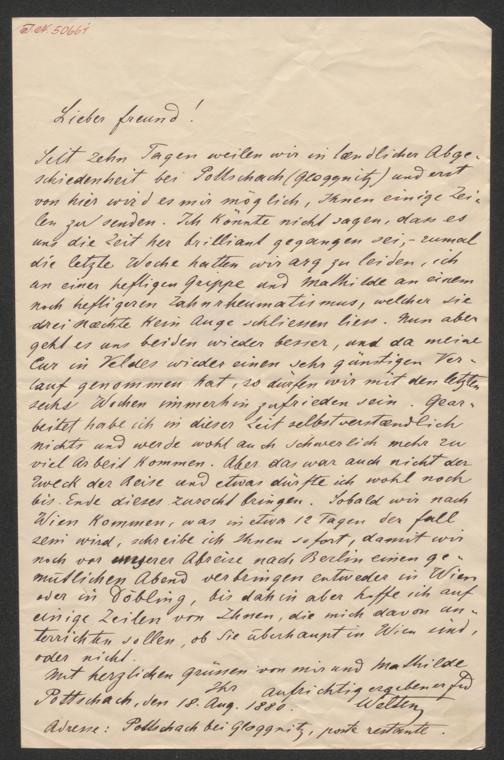 I.N. 50661
Lieber freund!
Seit zehn Tagen weilen wir in laendlicher Abge-
schiedenheit bei Pottschach (Gloggnitz) und erst
von hier wird es mir möglich, Ihnen einige Zei-
len zu senden. Ich könnte nicht sagen, dass es
uns die Zeit her brilliant gegangen sei, - zumal
die letzte Woche hatten wir arg zu leiden, ich
an einer heftigen Grippe und Mathilde an einem
noch heftigeren Zahnrheumatismus, welcher sie
drei naechte kein Auge schliessen liess. Nun aber
geht es uns beiden wieder besser, und da meine
Cur in Veldes wieder einen sehr günstigen Ver-
lauf genommen hat, so dürfen wir mit den letzten
sechs Wochen immerhin zufrieden sein. Gear-
beitet habe ich in dieser Zeit selbstverstaendlich
nichts und werde wohl auch schwerlich mehr zu
viel Arbeit kommen. Aber das war auch nicht der
Zweck der Reise und etwas dürfte ich wohl noch
bis Ende dieses zurecht bringen. Sobald wir nach
Wien kommen, was in etwa 12 Tagen der fall
sein wird, schreibe ich Ihnen sofort, damit wir
noch vor unserer Abreise nach Berlin einen ge-
mütlichen Abend verbringen entweder in Wien
oder in Döbling, bis dahin aber hoffe ich auf
einige Zeilen von Ihnen, die mich davon un-
terrichten sollen, ob Sie überhaupt in Wien sind,
oder nicht.
Mit herzlichen grüssen von mir und Mathilde
Ihr aufrichtig ergebener frd
Pottschach, den 18. Aug. 1880.
Adresse: Pottschach bei Gloggnitz, poste restante.